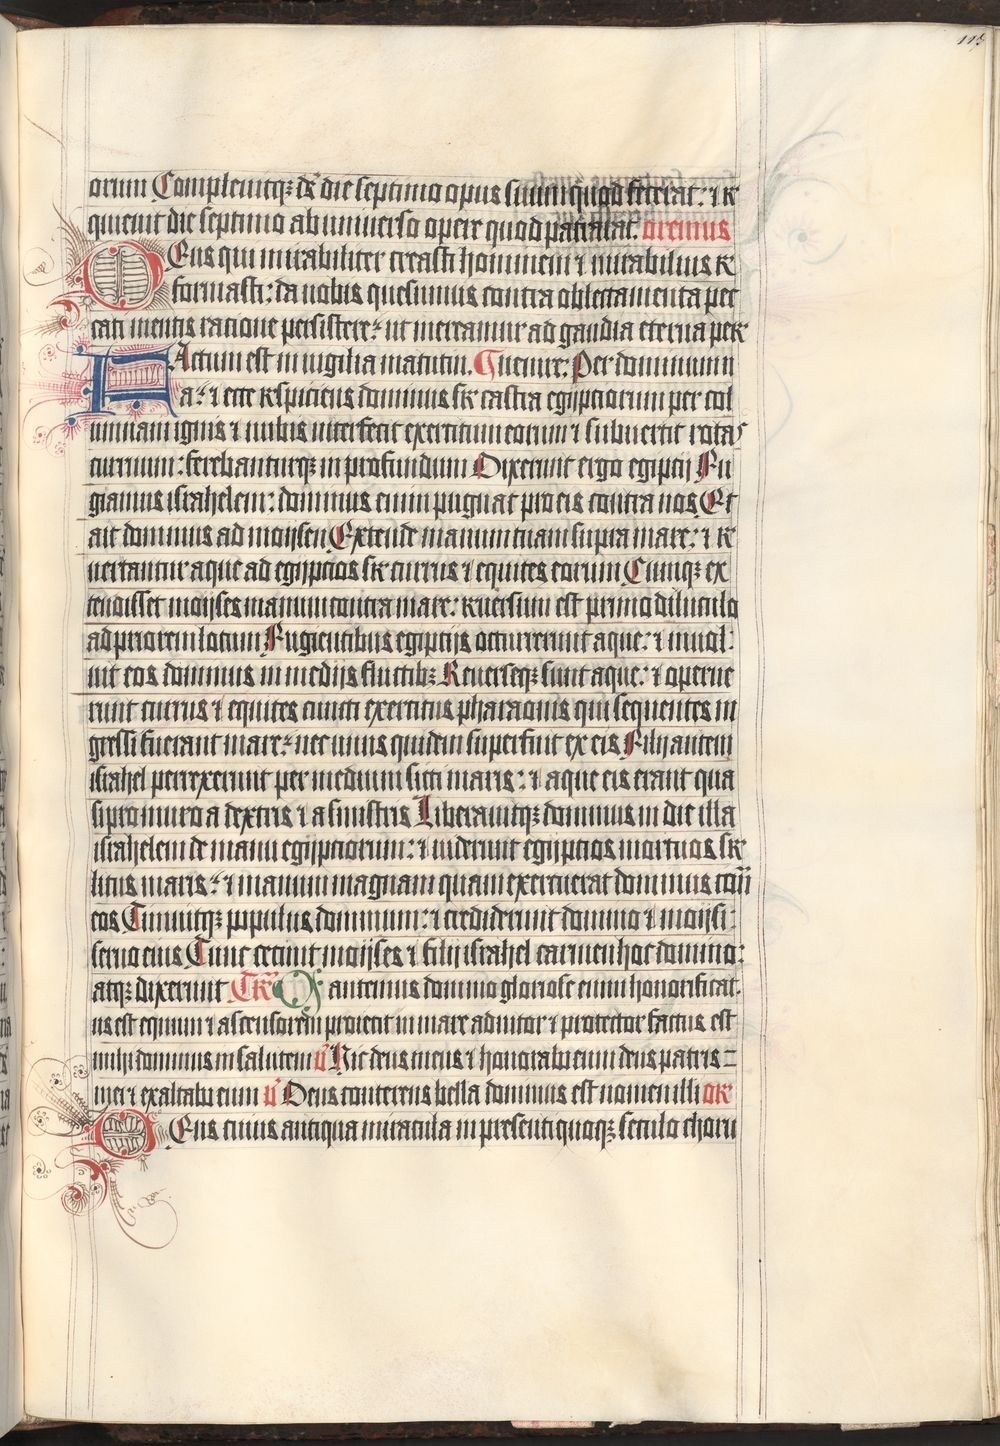 113
orum Complevitqꝫ de᷒ die septimo opus suum quod fecerat: ⁊ re
quievit die septimo ab universo opere quod patrarat. Oremus
Deus qui mirabiliter creasti hominem ⁊ mirabilius re
formasti: da nobis quesumus contra oblectamenta pec
cati mentis ratione persistere: ut mereamur ad gaudia eterna per
Factum est in vigilia matutin. Per dominum
a: ⁊ ecce respiciens dominus sr castra egypciorum per col
umnam ignis ⁊ nubis interfecit exercitum eorum ⁊ subvertit rotas
curruum: ferebanturqꝫ in profundum Dixerunt ergo egiptij Fu
giamus israhelem: dominus enim pugnat pro eis contra nos Et
ait dominus ad moysen Extende manum tuam supra mare: ⁊ re
vertantur aque ad egypcios sr currus ⁊ equites eorum Cumqꝫ ex
tendisset moyses manum contra mare: reversum est primo diluculo
ad priorem locum Fugientibus egiptijs occurrerunt aque: ⁊ invol
vit eos dominus in medijs fluctibꝫ Reverseqꝫ sunt aque: ⁊ operue
runt currus ⁊ equites cuncti exercitus pharaonis qui sequentes in
gressi fuerant mare: nec unus quidem superfuit ex eis Filij autem
israhel perrexerunt per medium sicci maris: ⁊ aque eis erant qua
si pro muro a dextris ⁊ a sinistris Liberavitqꝫ dominus in die illa
israhelem de manu egypciorum: ⁊ viderunt egypcios mortuos sr
litus maris: ⁊ manum magnam quam exercuerat dominus cont̃
eos Timuitqꝫ populus dominum: ⁊ crediderunt domino ⁊ moysi:
servo eius Tunc cecinit moyses ⁊ filij israhel carmen hoc domino:
atqꝫ dixerunt Tr̃ Cantemus domino gloriose enim honorificat
us est equum ⁊ ascensorem proiecit in mare adiutor ⁊ protector factus est
mihi dominus in salutem v̉ Hic deus meus ⁊ honorabo eum deus patris
mei ⁊ exaltabo eum v̉ Deus conterens bella dominus est nomen illi or
Deus cuius antiqua miracula in presenti quoqꝫ seculo choru